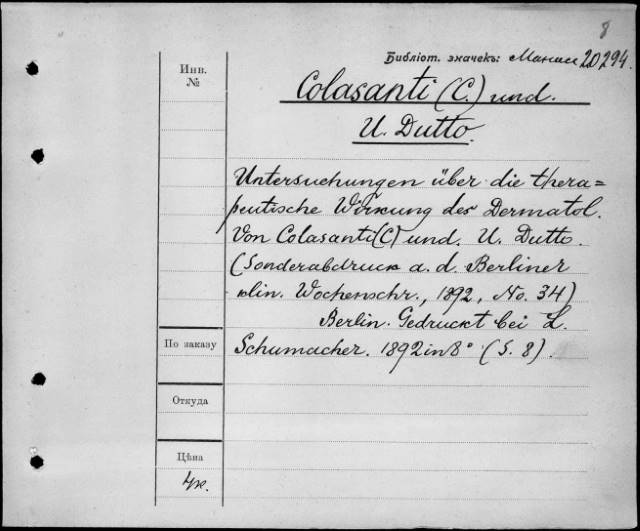 8
Библіот. значекъ: Манасс 20294.
Инв.
№
Colasanti (C.) und.
U. Dutto.
Untersuchungen über die thera=
peutische Wirkung des Dermatol.
Von Colasanti (C) und. U. Dutto.
(Sonderabdruck a. d. Berliner
klin. Wochenschr., 1892, No. 34)
Berlin. Gedruckt bei L.
По заказу
Schumacher. 1892 in 8° (S. 8).
Откуда
Цѣна
4к.